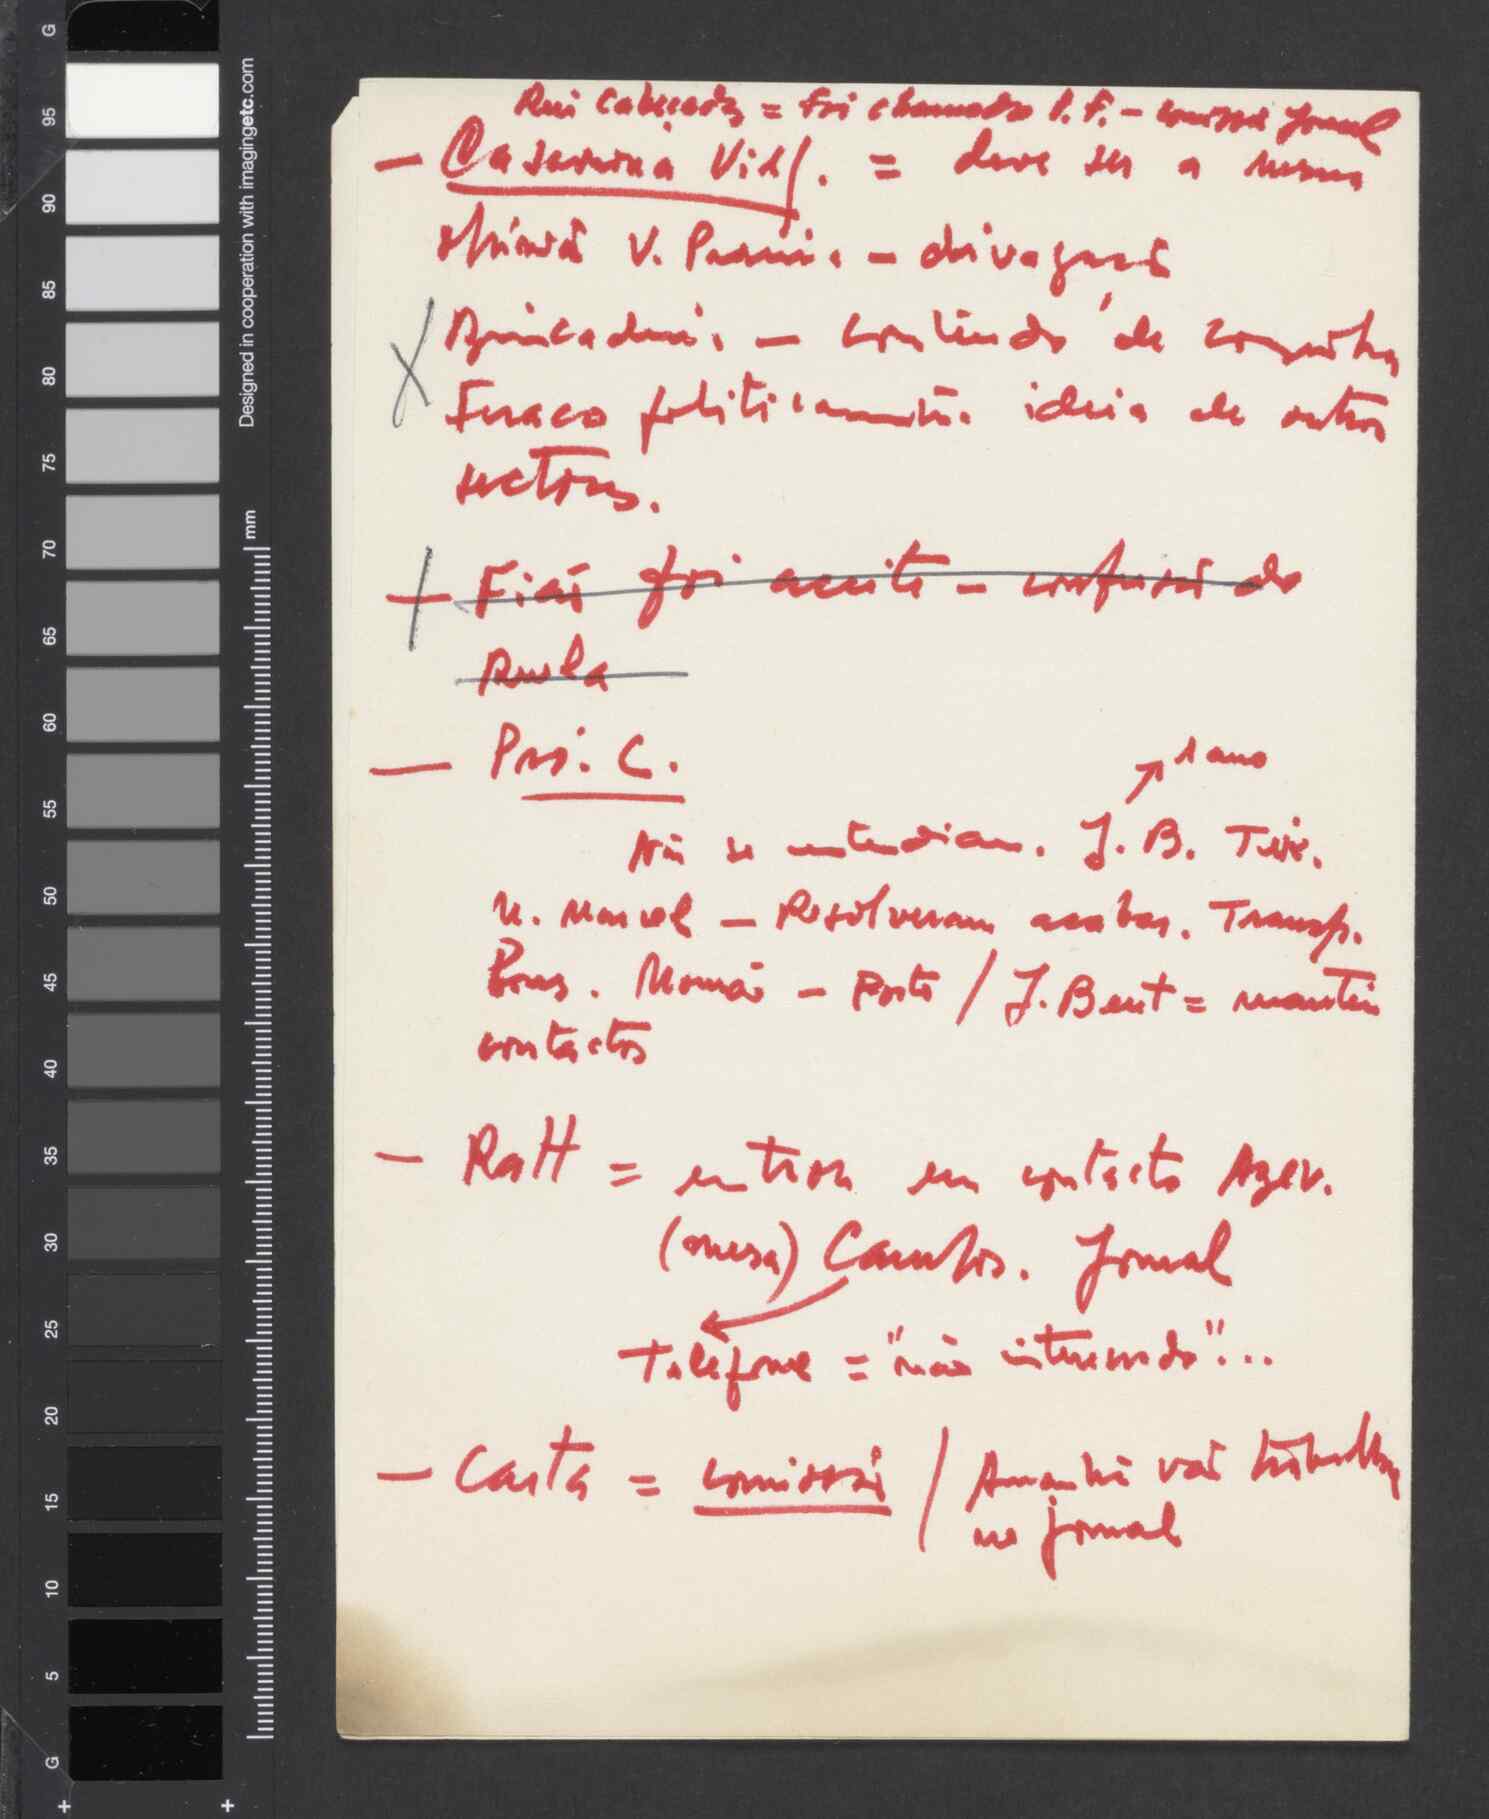 Rui Cabeçadas = Foi chamado P.F. - comissão Jornal
- Casanova Vid/. = deve ser a mesma
opinião V. - divagação
- conteúdo de conquista
Fraco politicamente. ideia de outros
sectores.
- Fiãs foi aceite - confusão do
- Pris. C.
1 ano
Não se entendiam. J. B. Teix.
M. Marcel - Resolveram acabar. Transp.
Bras. Romão - Porto / J. Bent = mantém
contactos
- RaH = entrou em contacto Azev.
(mesa) Campos. Jornal
Telefone = "não interessado"...
- Carta = comissão / Amanhã vai trabalhar
no jornal
G
95
90
85
80
75
70
65
60
55
50
45
40
35
30
25
20
15
10
5
G
mm
Designed in cooperation with imagingetc.com